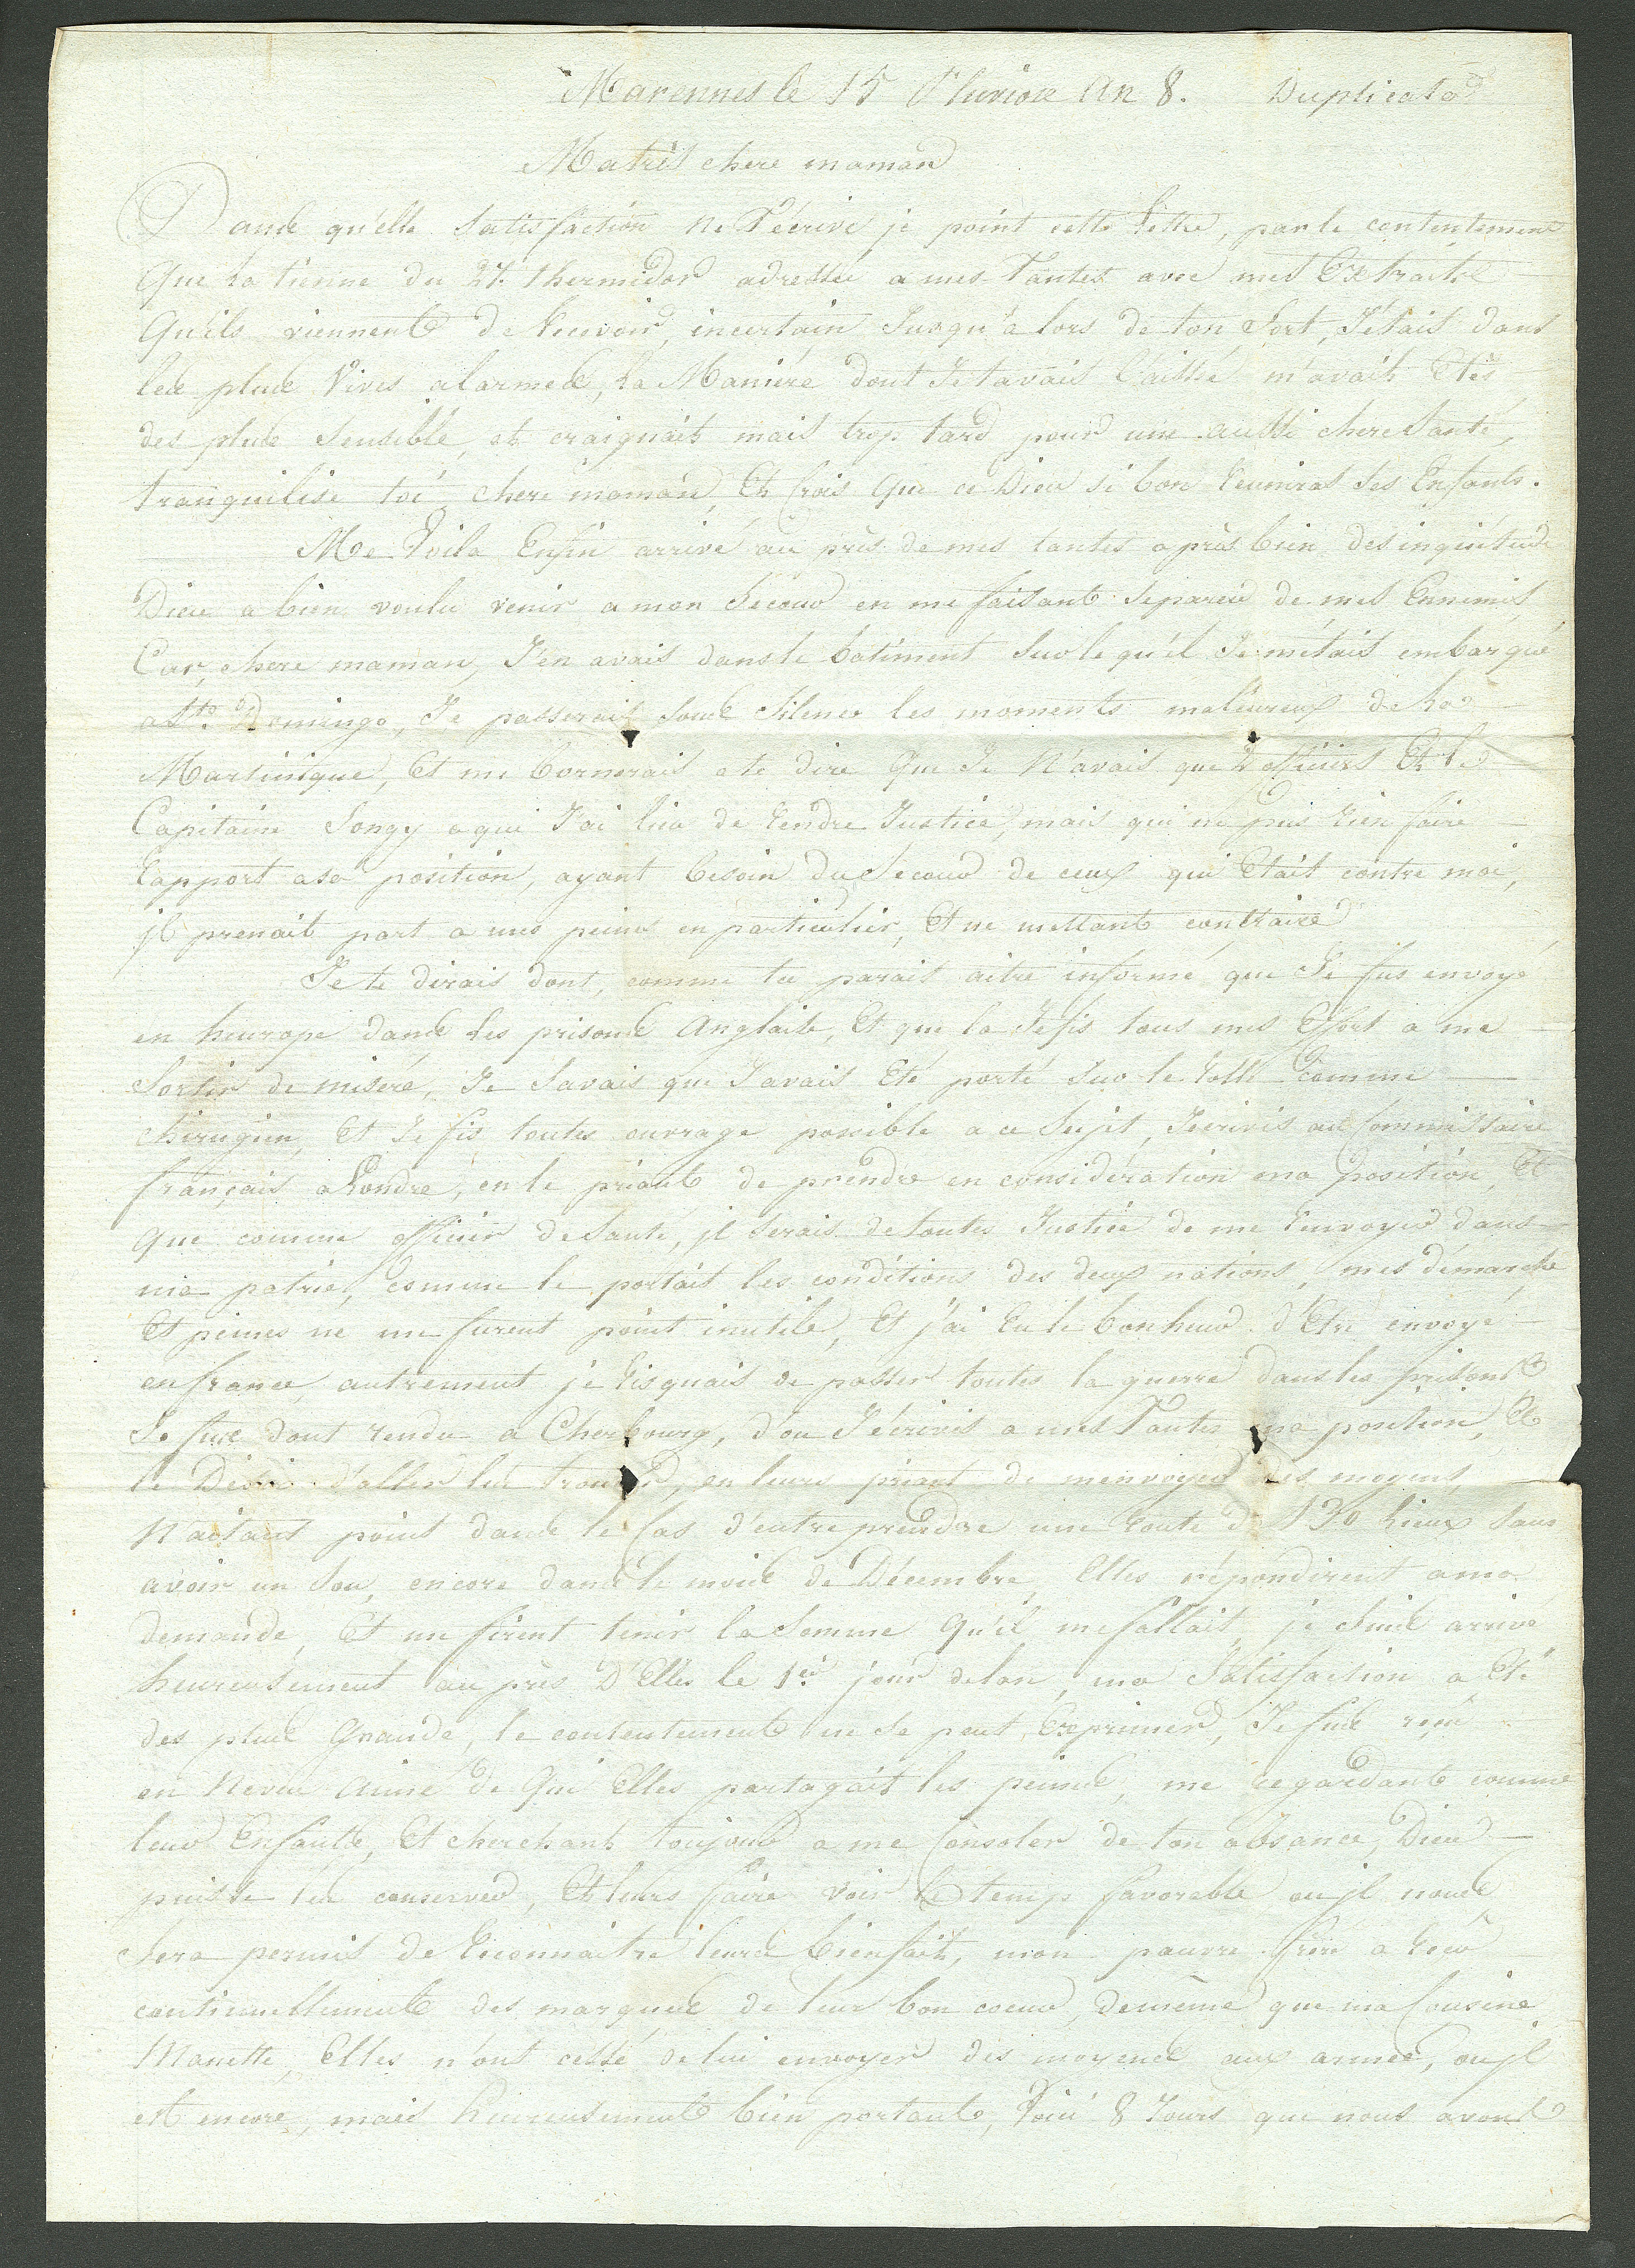 Marennes le 15 Pluviose An 8. Duplicata
Ma très chere maman
Dans qu'elle Satisfaction ne T'écrive je point cette Lettre, par le contentement
Que la tienne du 27. thermidor adressée a mes Tantes avec mes Extraits
Qu'ils viennent de Recevoir, incertain Jusqu'a lors de ton Sort, J'etais dans
les plus Vives alarmes, La Maniere dont Je t'avais Laissé m'avait Etés
des plus Sensible, et craignait mais trop tard pour une aussi chere Santé,
tranquilise toi chere maman, Et Crois Que ce Dieu si bon Reuniras Ses Enfants.
Me Voila Enfin arrivé au près de mes tantes après bien des inquiétude
Dieu a bien voulu venir a mon Secour en me faisant Separer de mes Ennemis,
Car, chere maman, J'en avais dans le batiment Sur le qu'el Je m'étais embarqué
a Sto. Domingo, Je passerais Sous Silence les moments maleureux de La
Martinique, Et me bornerais a te dire Que Je N'avais que 2 officiers Et le
Capitaine Songy a qui J'ai lieu de Rendre Justice, mais qui ne puis Rien faire
Rapport a sa position, ayant besoin du Secour de ceux qui Etait contre moi,
jl prenait part a mes peines en particulier, Et ne mettant contraire
Je te dirais dont, comme tu parais aitre informé que Je fus envoyé
en heurope dans les prisons Anglaise, Et que la Je fis tous mes Effort a me
Sortir de misere, Je Savais que J'avais Eté porté Sur le Rolle Comme
chirugien, Et Je fis toutes ouvrage possible a ce Sujet, J'ecrivis au Commissaire
français a Londre, en le priant de prendre en consideration ma position, Et
Que comme officier de Santé, jl Serais de toutes Justice de me Renvoyer dans
ma patrie, comme le portait les conditions des deux nations, mes démarche
Et peines ne me furent point inutile, Et j'ai Eu le bonheur d'Etre envoyé
en france, autrement je Risquais de passer toutes la guerre dans les prisons
Je fus dont rendu a Cherbourg, d'ou J'écrivis a mes Tantes ma position, Et
le Désir d'aller les trouver, en leurs priant de m'envoyer des moyens,
N'aitant point dans le Cas d'entreprendre une Route de 130 Lieux Sans
avoir un Sou, encore dans le mois de Décembre, Elles répondirent a ma
demande, Et me firent tenir la Somme Qu'il me fallait, je Suis arrivé
heureusement au près D'Elles le 1er. jour de l'an, ma Satisfaction a Eté
des plus Grande, le contentement ne Se peut Exprimer, Je fus reçû
en Neveu Aimé de Qui Elles partagait les peines, me regardant comme
leur Enfants, Et cherchant toujour a me Consoler de ton absance, Dieu
puisse les conserver, Et leurs faire voir Le temps favorable ou jl nous
Sera permis de Reconnaitre leurs bienfait, mon pauvre frère a Recû
continuellement des marques de leur bon coeur, de même que ma Cousine
Manette, Elles n'ont cessé de lui envoyer des moyens aux armée, ou jl
est encore, mais heureusement bien portant, Voici 8 Jours que nous avons